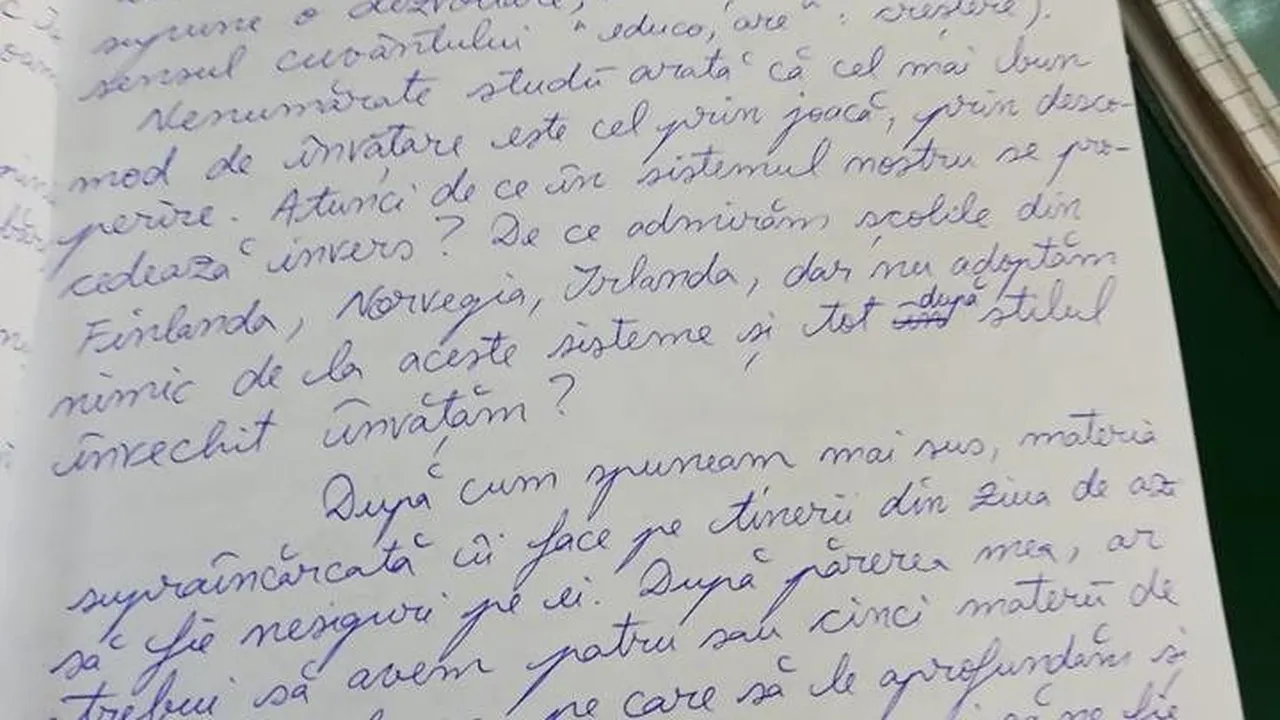 supune o dezvoltare,
sensul cuvântului "educo, are": creștere).
Nenumărate studii arată că cel mai bun
mod de învățare este cel prin joacă, prin desco-
perire. Atunci de ce în sistemul nostru se pro-
cedează invers? De ce admirăm școlile din
Finlanda, Norvegia, Irlanda, dar nu adoptăm
nimic de la aceste sisteme și tot după stilul
învechit învățăm?
După cum spuneam mai sus, materia
supraîncărcată îi face pe tinerii din ziua de azi
să fie nesiguri pe ei. După părerea mea, ar
trebui să avem patru sau cinci materii de
pe care să le aprofundăm și
să ne fie